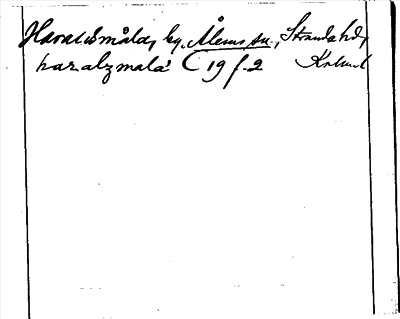 Haraldsmåla, by, Ålems sn., Stranda hd,
haralzmala C 19 f. 2 Kalmar l